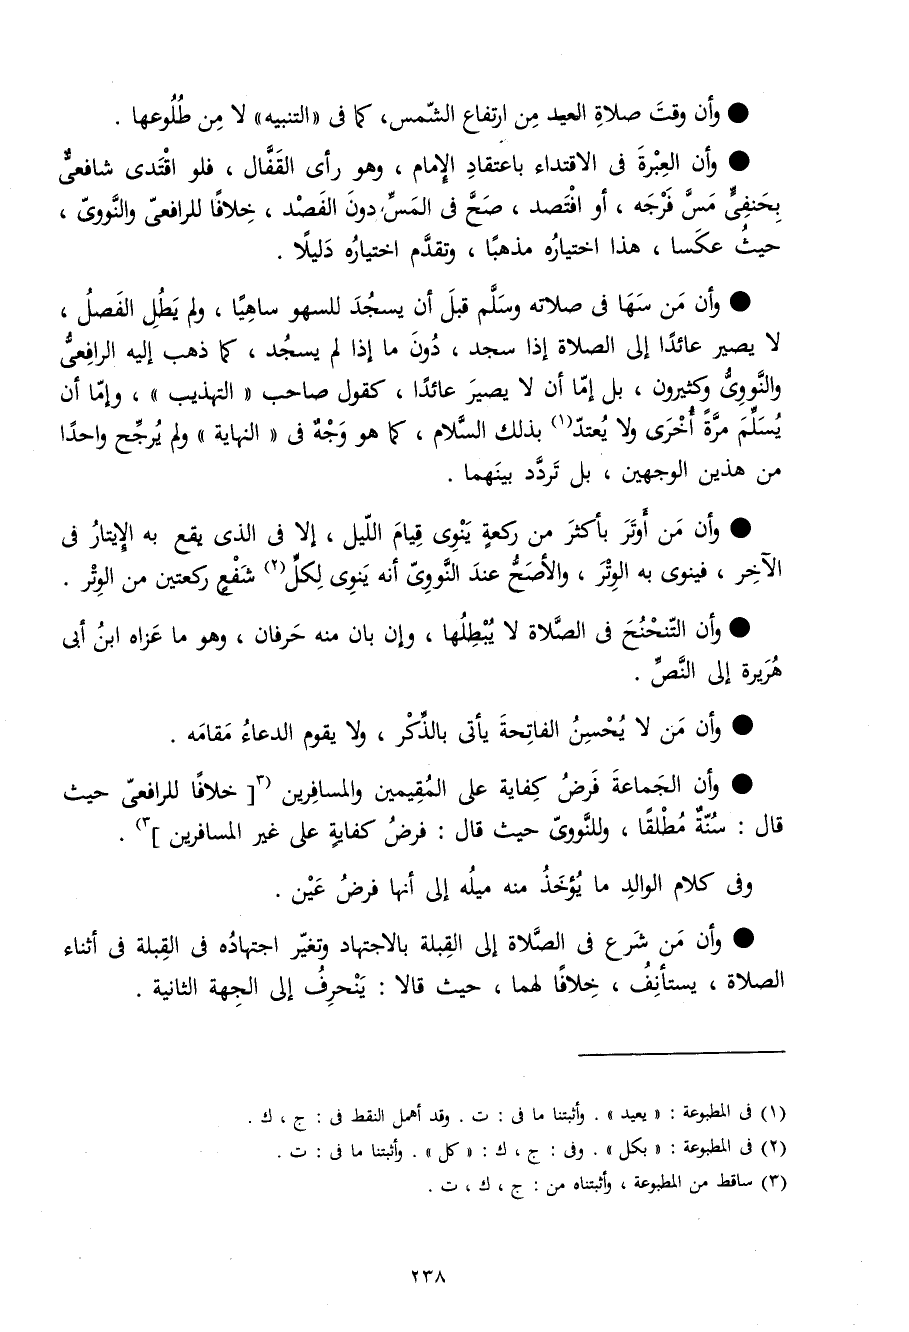 ● وأن وقتَ صلاةِ العيد مِن ارتفاع الشّمس، كما فى «التنبيه» لا مِن طُلُوعها .
● وأن العِبْرةَ فى الاقتداء باعتقادِ الإِمام ، وهو رأى القَفَّال ، فلو اقْتَدى شافعىٌّ
بِحَنفِىٍّ مَسَّ فَرْجَه ، أو افْتَصد ، صَحَّ فى المَسِّ دونَ الفَصْد ، خِلافًا للرافعىّ والنَّووىّ ،
حيثُ عكَسا ، هذا اختيارُه مذهبًا ، وتقدَّم اختيارُه دَليلًا .
● وأن مَن سَهَا فى صلاته وسَلَّم قبلَ أن يسجُدَ للسهو ساهِيًا ، ولم يَطُلِ الفَصلُ ،
لا يصير عائدًا إلى الصلاة إذا سجد ، دُونَ ما إذا لم يسجُد ، كما ذهب إليه الرافِعىُّ
والنَّووِىُّ وكثيرون ، بل إمّا أن لا يصيرَ عائدًا ، كقول صاحب « التهذيب » ، وإمّا أن
يُسَلِّمَ مرَّةً أُخْرَى ولا يُعتدّ(١) بذلك السَّلام ، كما هو وَجْهٌ فى « النهاية » ولم يُرجِّح واحدًا
من هذين الوجهين ، بل تَردَّد بينَهما .
● وأن مَن أَوتَرَ بأكثرَ من ركعةٍ يَنْوِى قِيامَ اللّيل ، إلا فى الذى يقع به الإِيتارُ فى
الآخِر ، فينوى به الوِتْرَ ، والأصَحُّ عندَ النَّووِىّ أنه يَنوِى لِكلِّ(٢) شَفْعٍ ركعتين من الوِتْر .
● وأن التّنحْنُحَ فى الصَّلاة لا يُبْطِلُها ، وإن بان منه حَرفان ، وهو ما عَزاه ابنُ أبى
هُرَيرة إلى النَّصِّ .
● وأن مَن لا يُحْسِنُ الفاتِحةَ يأتى بالذِّكْر ، ولا يقوم الدعاءُ مَقامَه .
● وأن الجَماعةَ فَرضُ كِفاية على المُقِيمين والمسافِرين (٣[ خلافًا للرافعىّ حيث
قال : سُنّةٌ مُطْلقًا ، وللنَّووىّ حيث قال : فرضُ كفايةٍ على غير المسافرين ]٣) .
وفى كلام الوالدِ ما يُؤخَذُ منه ميلُه إلى أنها فرضُ عَيْن .
● وأن مَن شَرع فى الصَّلاة إلى القِبلة بالاجتهاد وتغيّر اجتهادُه فى القِبلة فى أثناء
الصلاة ، يستأنِفُ ، خِلافًا لهما ، حيث قالا : يَنْحرِفُ إلى الجِهة الثانية .
(١) فى المطبوعة : « يعيد » . وأثبتنا ما فى : ت . وقد أهمل النقط فى : ج ، ك .
(٢) فى المطبوعة : « بكل » . وفى : ج ، ك : « كل » . وأثبتنا ما فى : ت .
(٣) ساقط من المطبوعة ، وأثبتناه من : ج ، ك ، ت .
٢٣٨